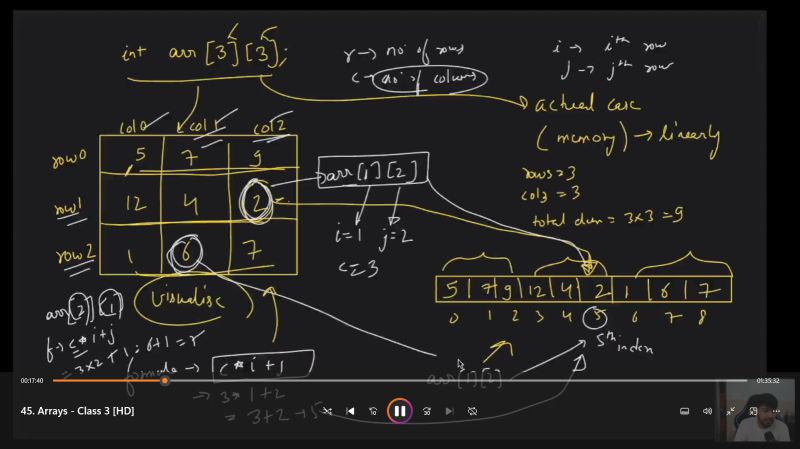 int arr [3][3];
r → no. of rows
c → no. of columns
i → ith row
j → jth row
actual case
(memory) → linearly
rows = 3
cols = 3
col0 col1 col2
row0 5 7 9
row1 12 4 2
row2 1 6 7
arr[1][2]
i=1 j=2
c=3
visualise
5 7 9 12 4 2 1 6 7
0 1 2 3 4 5 6 7 8
5th index
arr[2][1]
f → c*i+j
= 3×2+1 = 6+1 = 7
formula → c*i+j
→ 3*1+2
= 3+2 → 5
arr[1][2]
00:17:40
01:35:32
45. Arrays - Class 3 [HD]